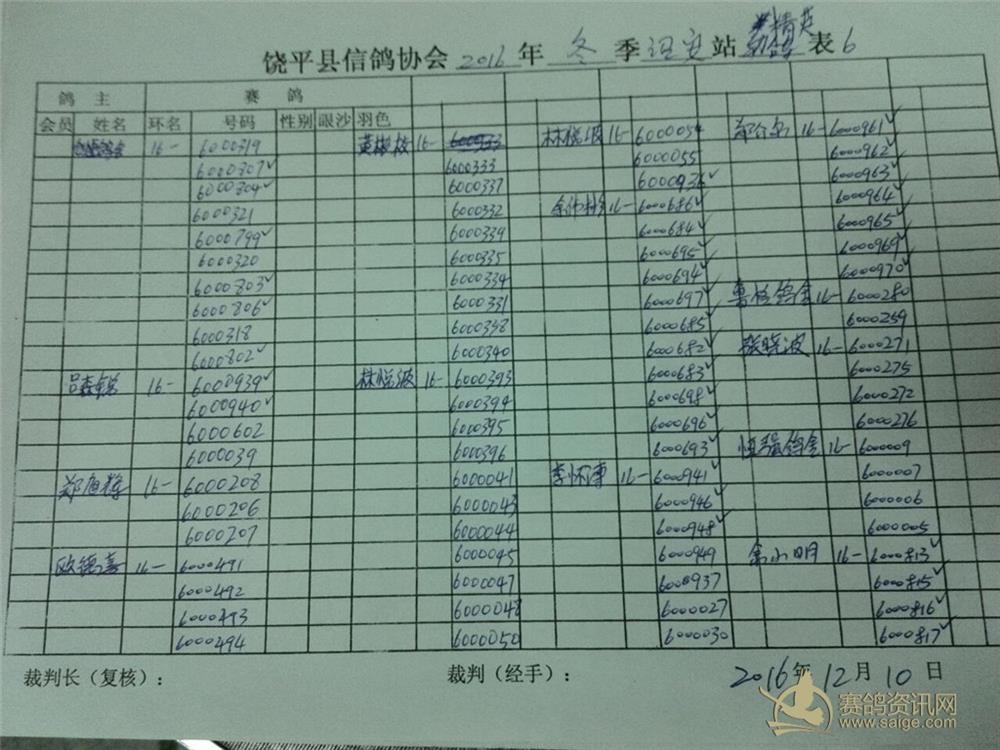 饶平县信鸽协会 2016 年 冬 季 诏安 站 精英 幼鸽 表 6
鸽 主 赛 鸽
会员 姓名 环名 号码 性别 眼沙 羽色
16- 6000319
6000807✓
6000804✓
6000321
6000799✓
6000320
6000803✓
6000806✓
6000318
6000802✓
16- 6000939✓
6000940✓
6000602
6000039
16- 6000208
6000206
6000207
欧德喜 16- 6000491
6000492
6000493
6000494
16-
6000333
6000337
6000332
6000339
6000335
6000334
6000331
6000338
6000340
林悦波 16- 6000393
6000394
6000395
6000396
6000041
6000043
6000044
6000045
6000047
6000048
6000050
林悦波 16- 6000054
6000055
6000936✓
16- 6000686✓
6000684✓
6000695✓
6000694✓
6000697✓
6000685✓
6000682✓
6000683✓
6000698✓
6000696✓
6000693✓
李怀专 16- 6000941✓
6000946✓
6000948✓
6000949
6000937
6000027
6000030
16- 6000961✓
6000962✓
6000963✓
6000964✓
6000965✓
6000969✓
6000970✓
鸽舍 16- 6000280
6000259
张晓波 16- 6000271
6000275
6000272
6000276
恒强鸽舍 16- 6000009
6000007
6000006
6000005
余小明 16- 6000813✓
6000815✓
6000816✓
6000817✓
裁判长（复核）： 裁判（经手）： 2016年12月10日
赛鸽资讯网
www.saige.com